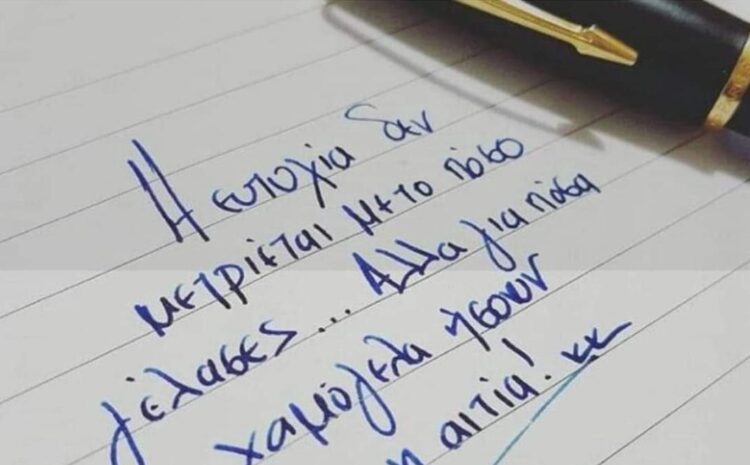 Η ευτυχία δεν
μετριέται με το πόσο
γέλασες... Αλλα για πόσα
χαμόγελα ήσουν
η αιτία!